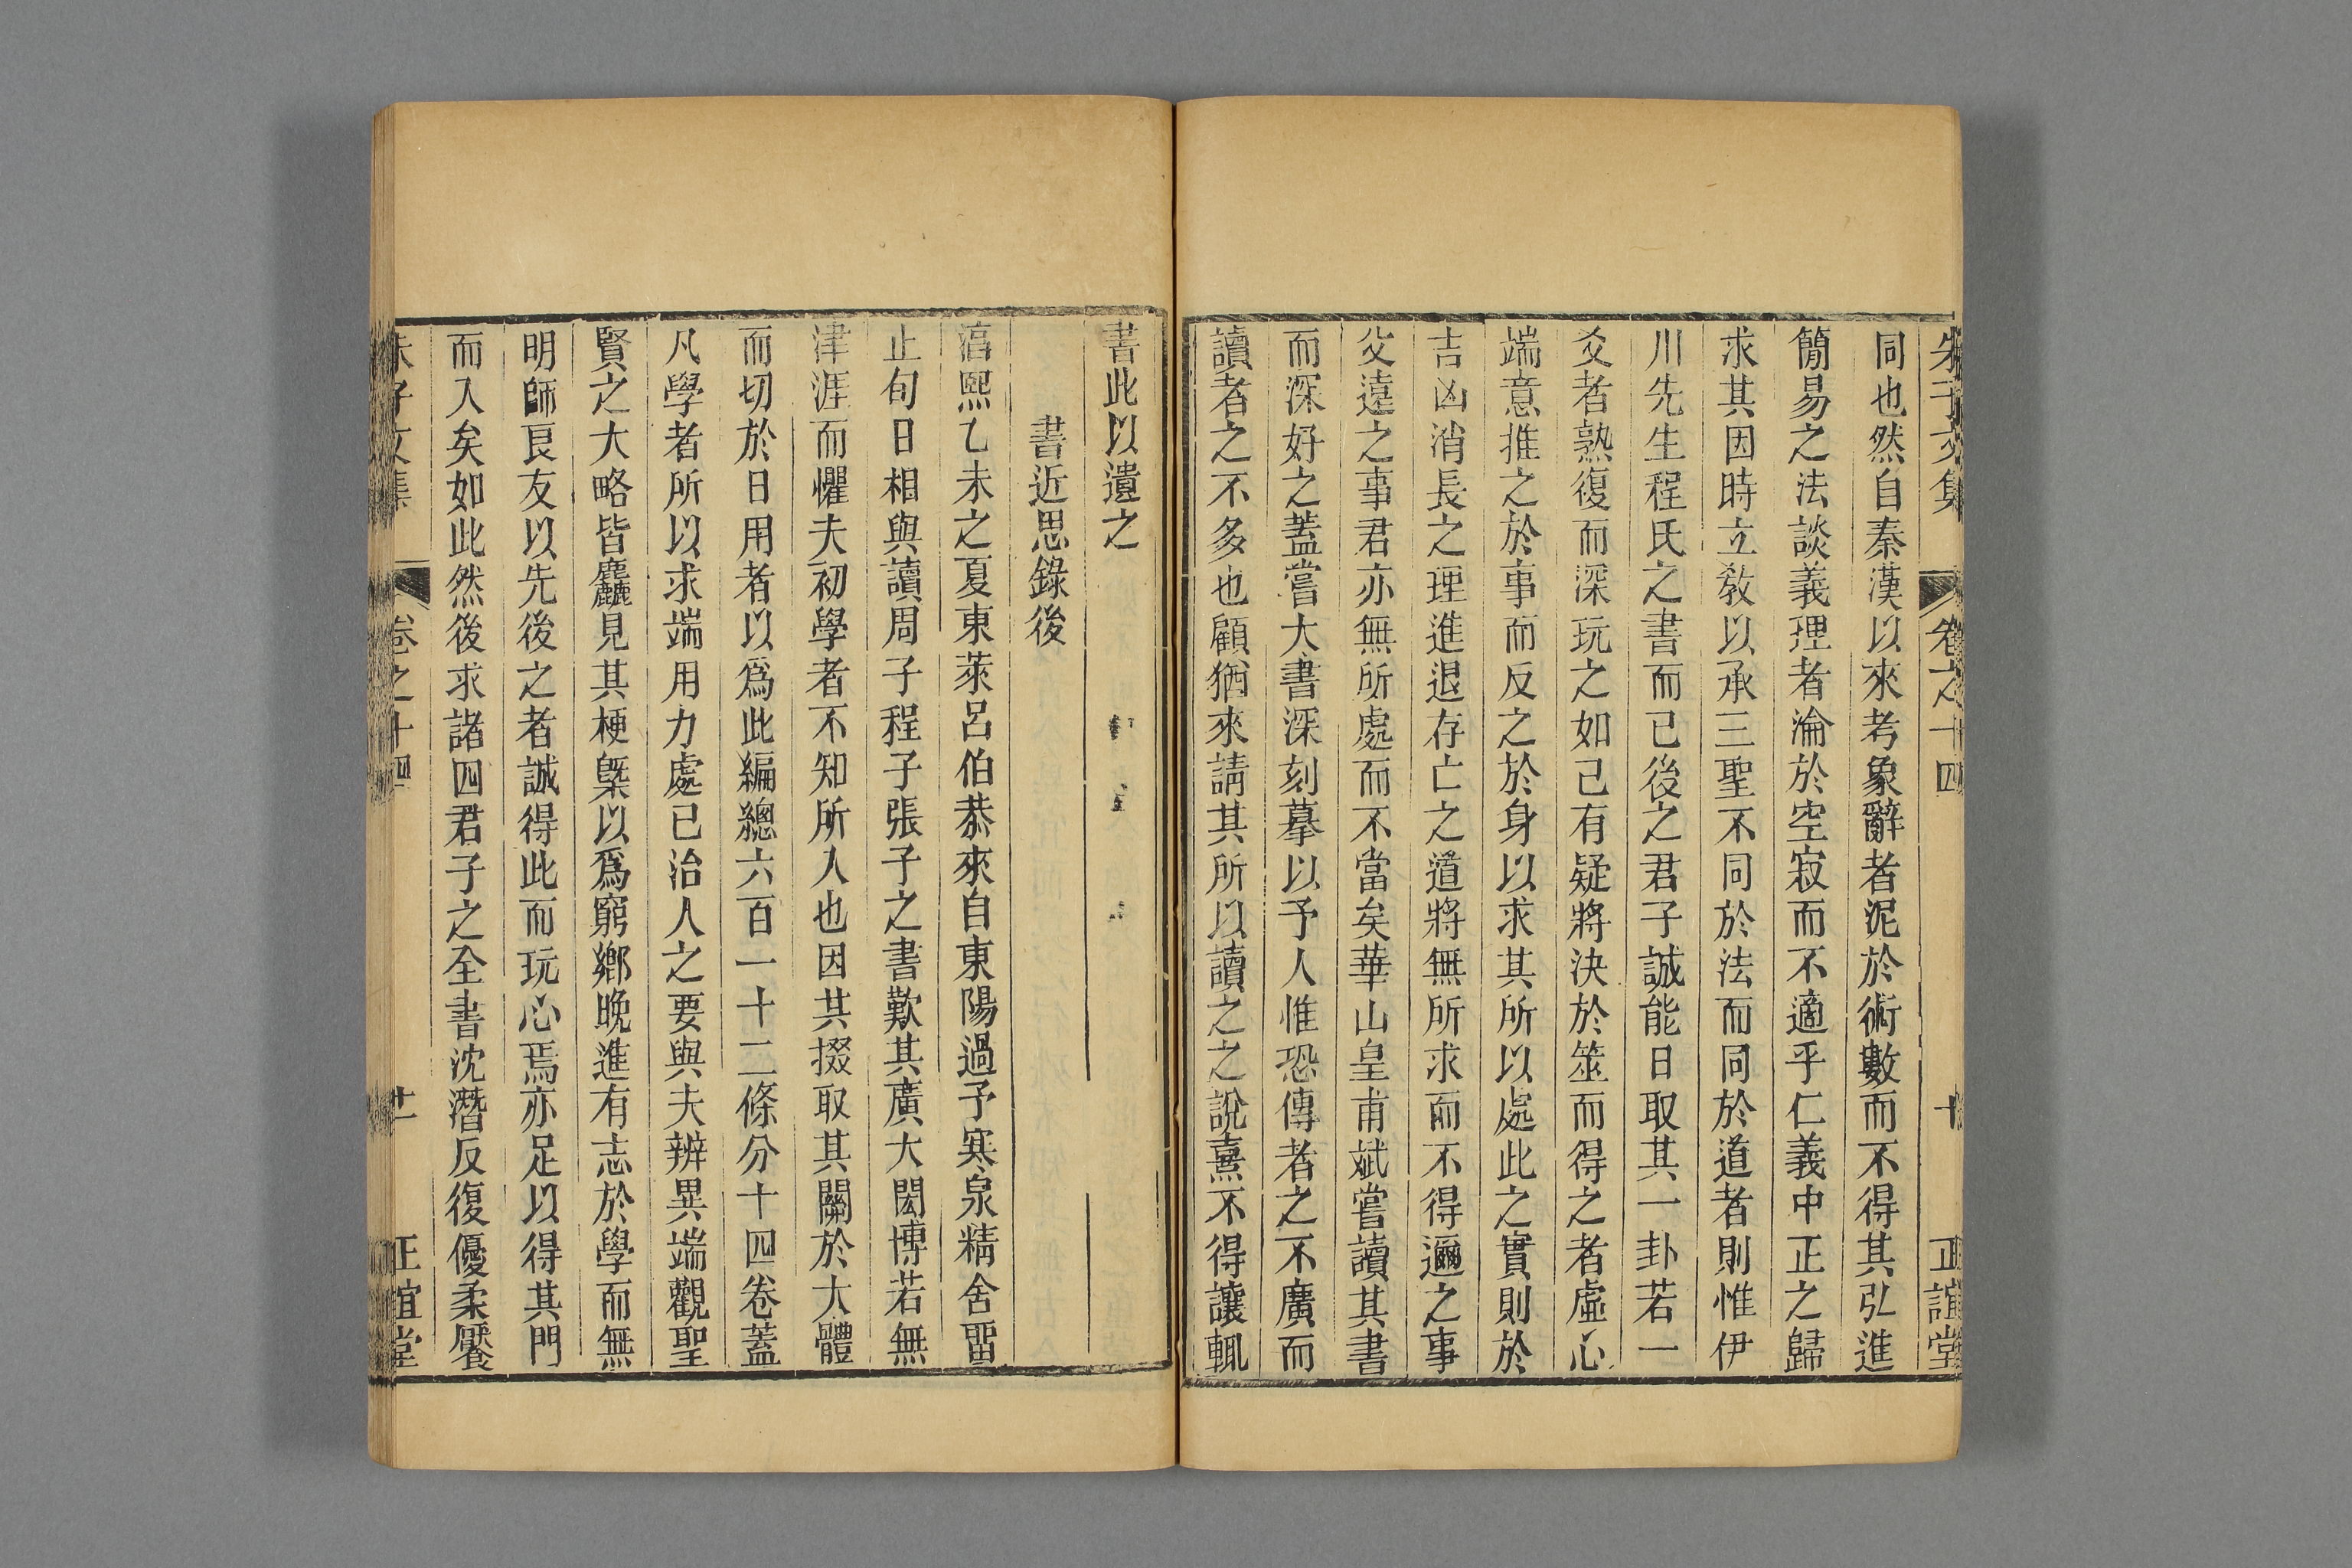 朱子文集 卷之十四 十 正誼堂
同也然自秦漢以來考象辭者泥於術數而不得其弘進
簡易之法談義理者淪於空寂而不適乎仁義中正之歸
求其因時立敎以承三聖不同於法而同於道者則惟伊
川先生程氏之書而已後之君子誠能日取其一卦若一
爻者熟復而深玩之如己有疑將決於筮而得之者虛心
端意推之於事而反之於身以求其所以處此之實則於
吉凶消長之理進退存亡之道將無所求而不得邇之事
父遠之事君亦無所處而不當矣華山皇甫斌嘗讀其書
而深好之蓋嘗大書深刻摹以予人惟恐傳者之不廣而
讀者之不多也顧猶來請其所以讀之之說熹不得讓輒
書此以遺之
書近思錄後
淳熙乙未之夏東萊呂伯恭來自東陽過予寒泉精舍畱
止旬日相與讀周子程子張子之書歎其廣大閎博若無
津涯而懼夫初學者不知所入也因其掇取其關於大體
而切於日用者以爲此編總六百一十二條分十四卷蓋
凡學者所以求端用力處已治人之要與夫辨異端觀聖
賢之大略皆麤見其梗槩以爲窮鄕晚進有志於學而無
明師良友以先後之者誠得此而玩心焉亦足以得其門
而入矣如此然後求諸四君子之全書沈潛反復優柔饜
朱子文集 卷之十四 十一 正誼堂